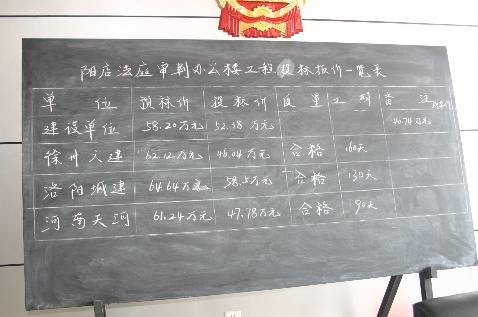 阳店法庭审判办公楼工程投标报价一览表
单 位 预标价 投标价 质量 工期 备 注
建设单位 58.20万元 52.38万元 40.74万元
徐州六建 62.12万元 46.04万元 合格 160天
洛阳城建 64.64万元 58.5万元 合格 130天
河南天河 61.24万元 47.78万元 合格 90天